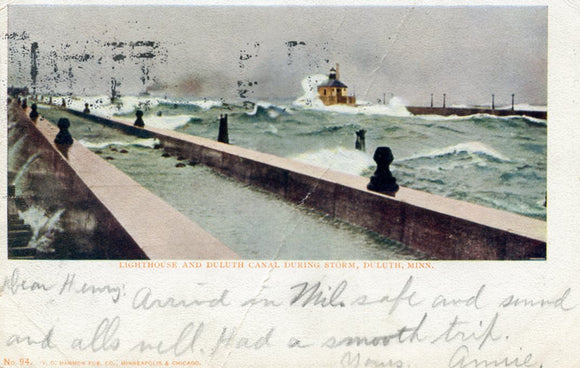 LIGHTHOUSE AND DULUTH CANAL DURING STORM, DULUTH, MINN.
Dear Henry:
Arrived in Mil. safe and sound
and alls well. Had a smooth trip.
Yours. Annie.
No. 94. V. O. HAMMON PUB. CO., MINNEAPOLIS & CHICAGO.